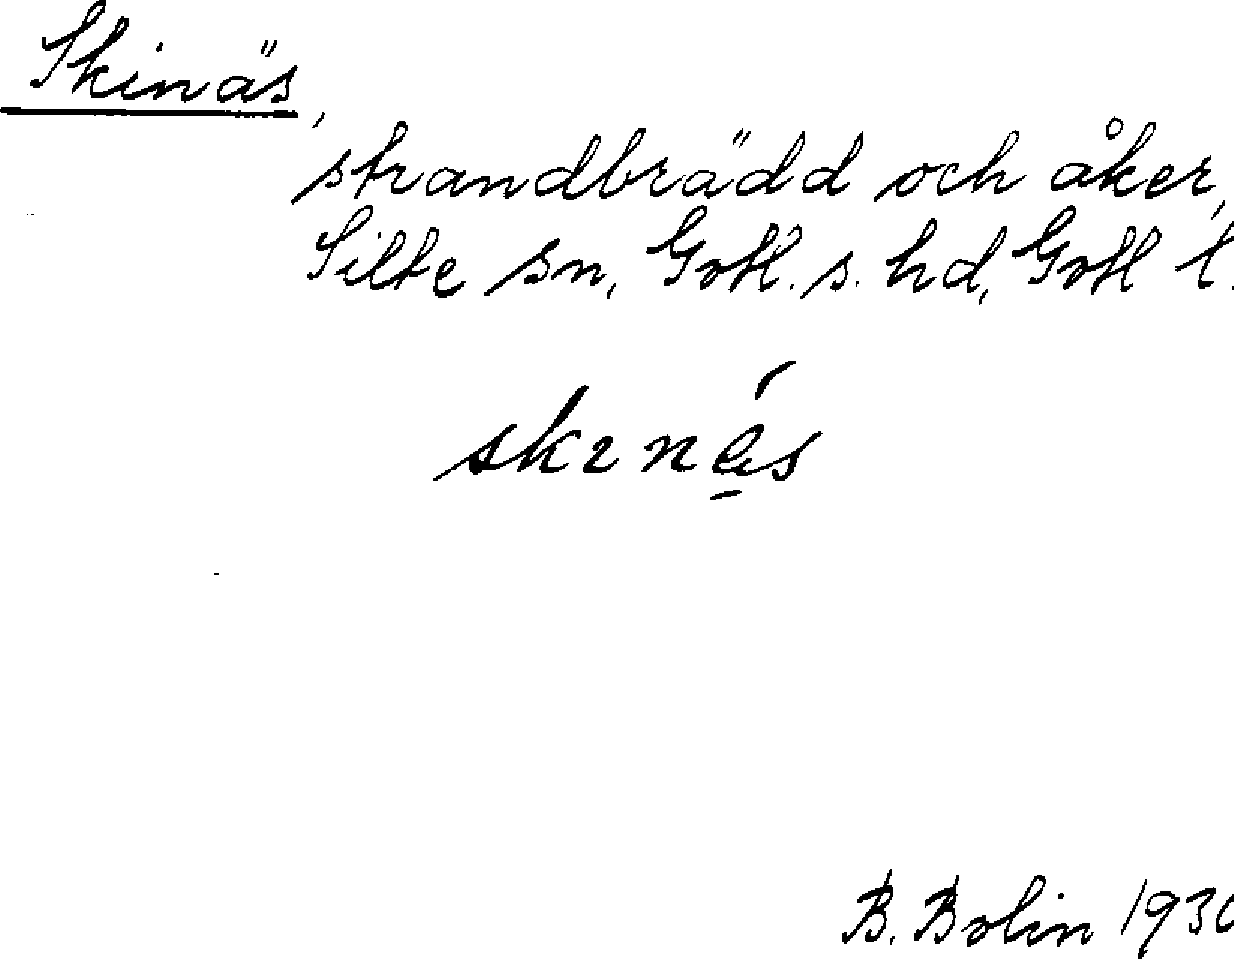 Skinäs,
strandbrädd och åker,
Silte sn, Gotl. s. hd, Gotl l.
skinés
B. Bolin 1930